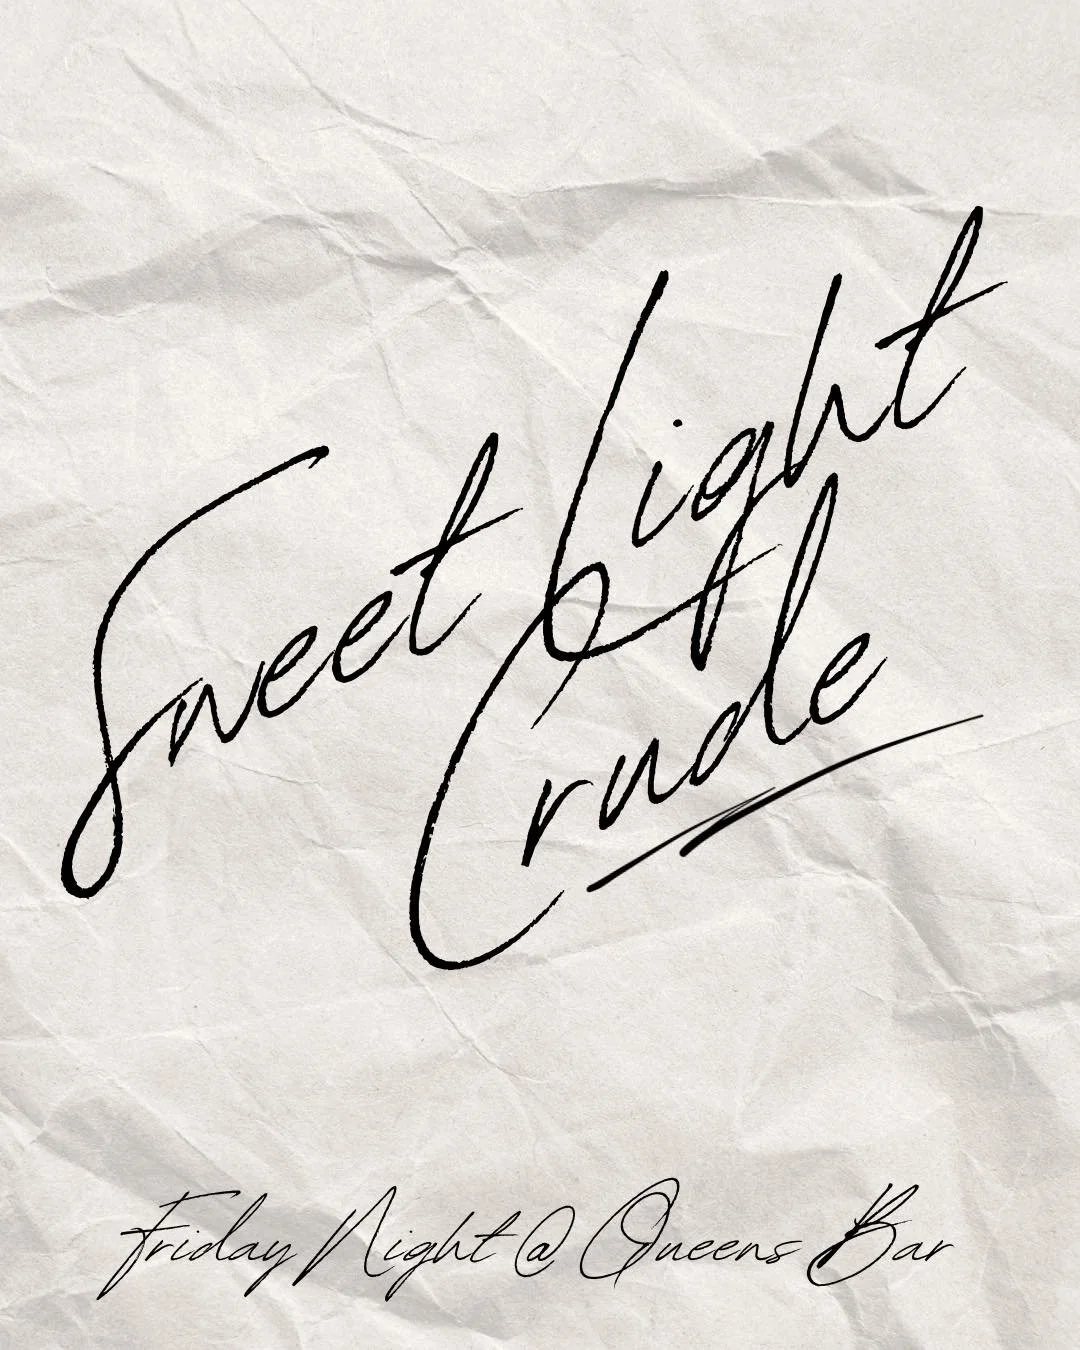 Sweet Light
Crude
Friday Night @ Queens Bar